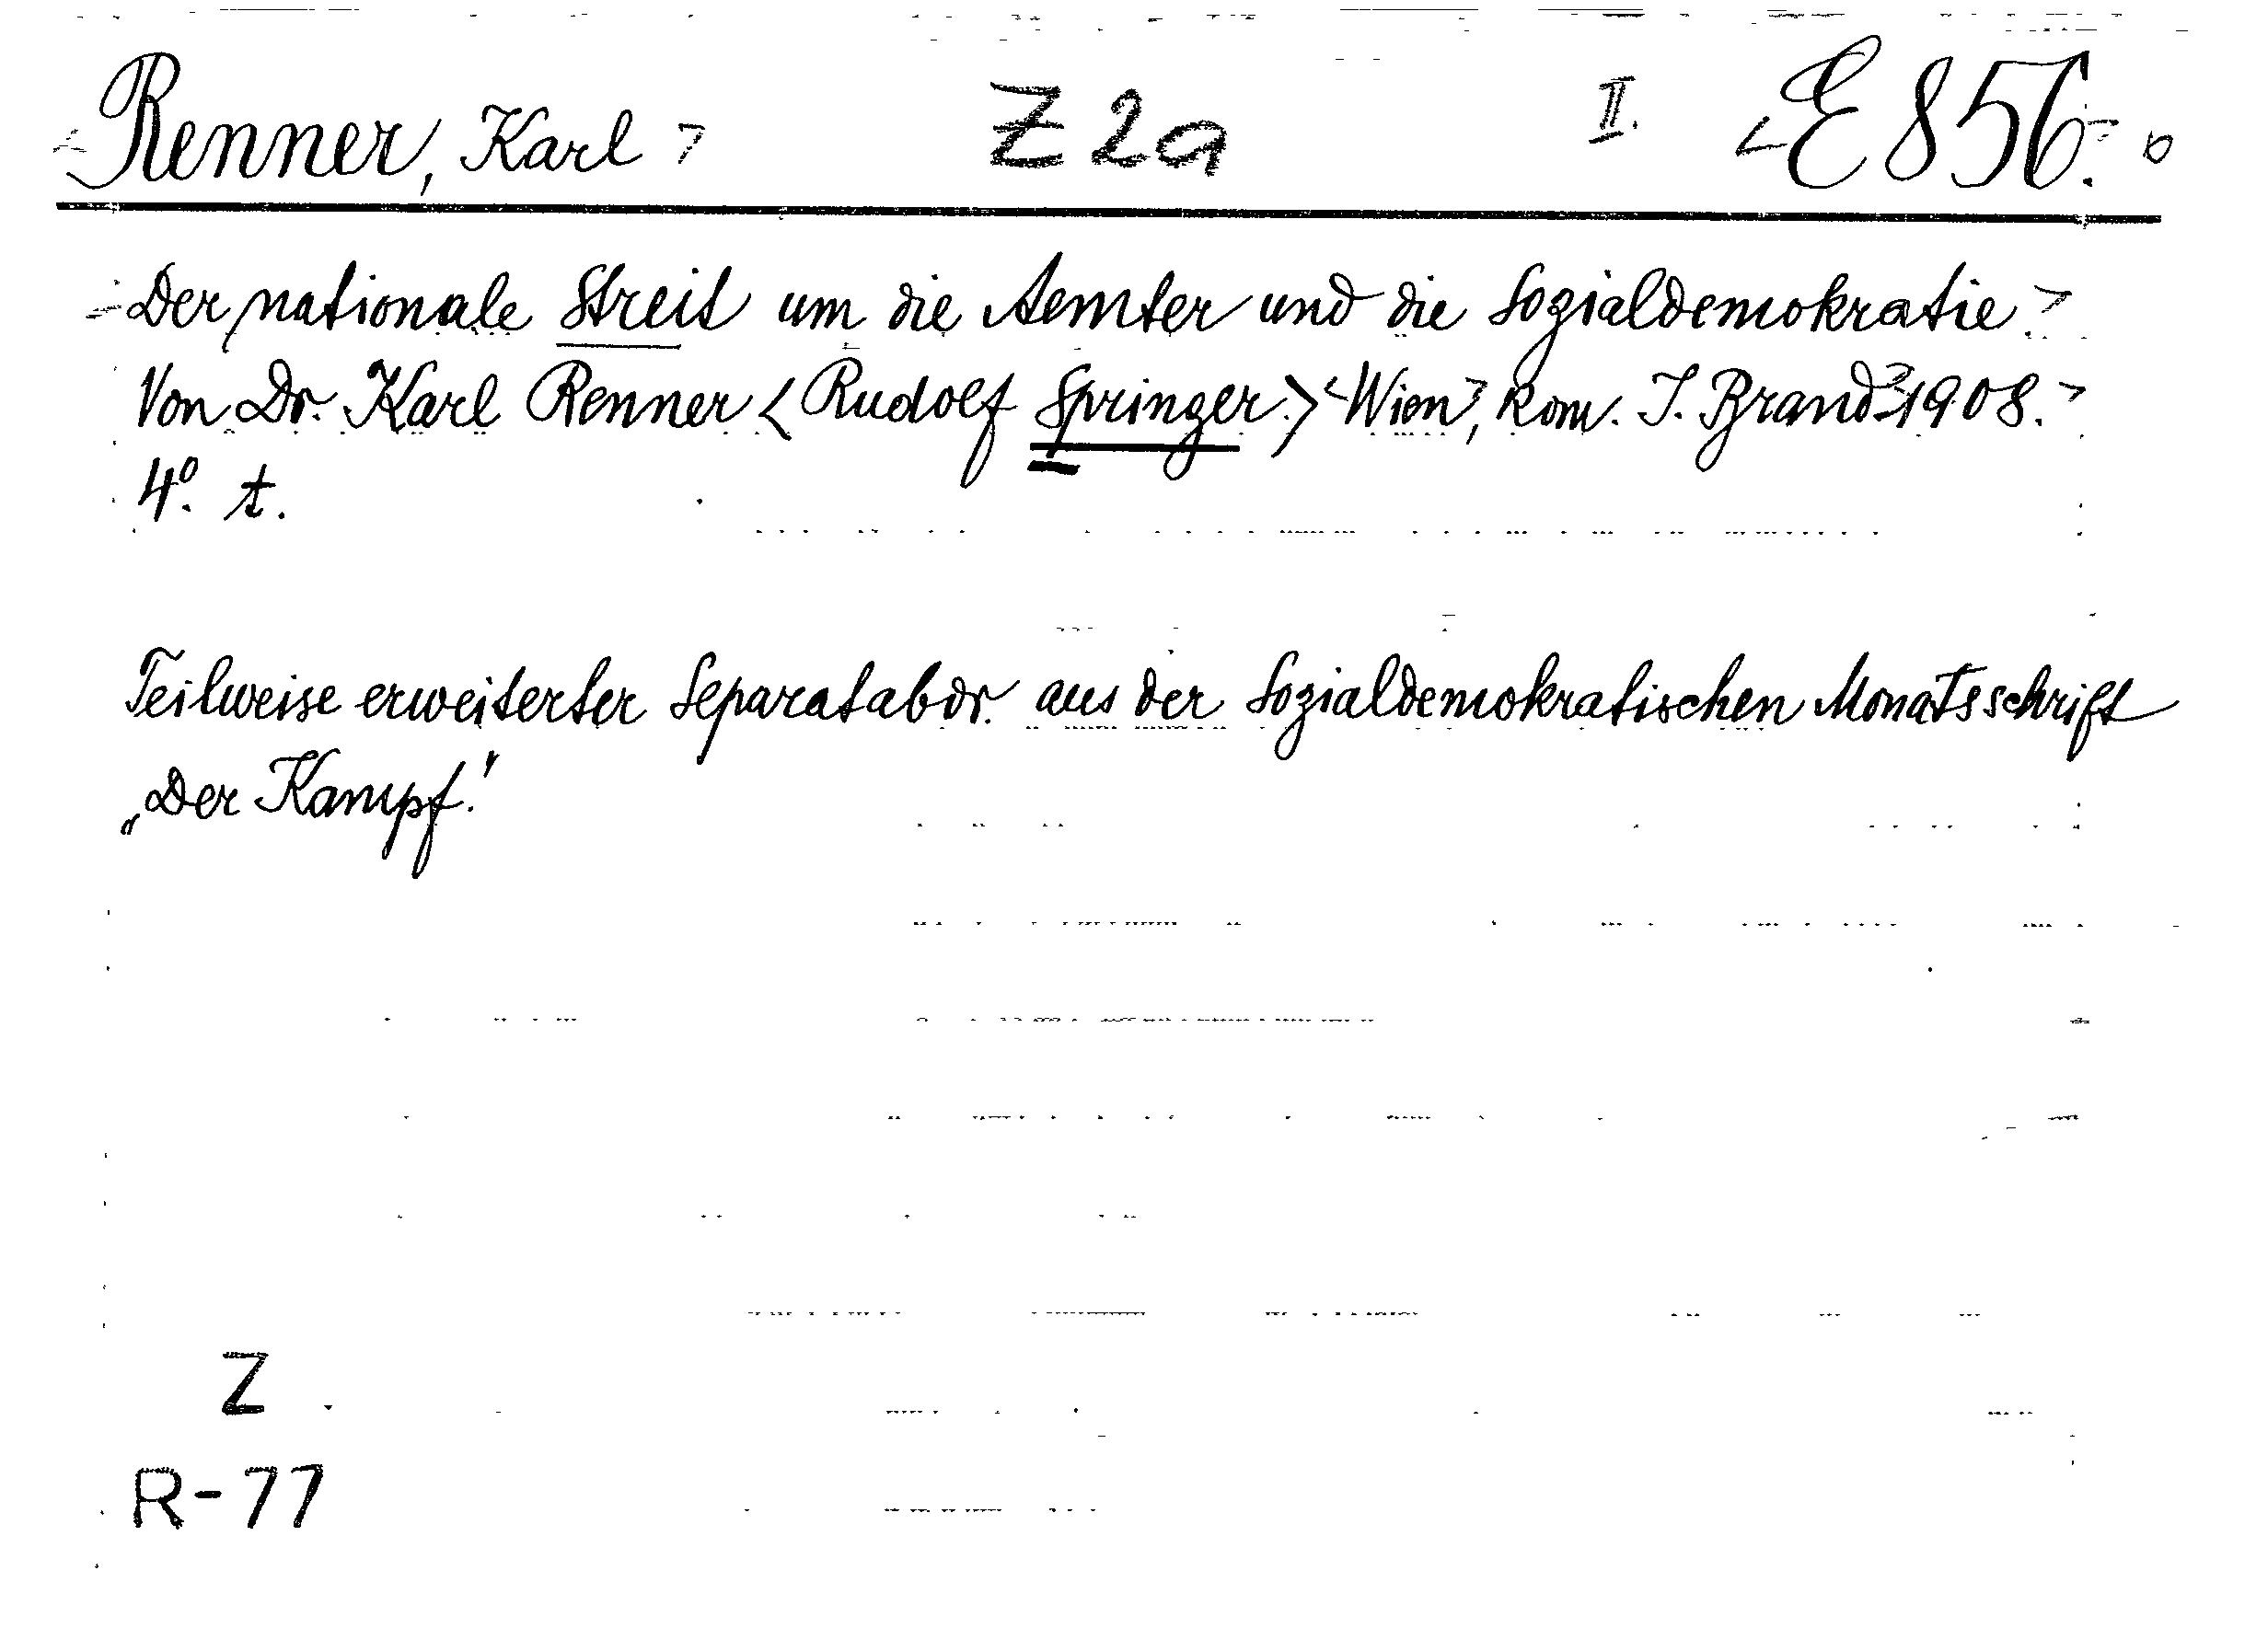 Renner, Karl Z2a II. E 856.
Der nationale Streit um die Aemter und die Sozialdemokratie.
Von Dr. Karl Renner < Rudolf Springer. > Wien, Kom. J. Brand 1908.
4°. t.
Teilweise erweiterter Separatabdr. aus der Sozialdemokratischen Monatsschrift
„Der Kampf."
Z
R-77